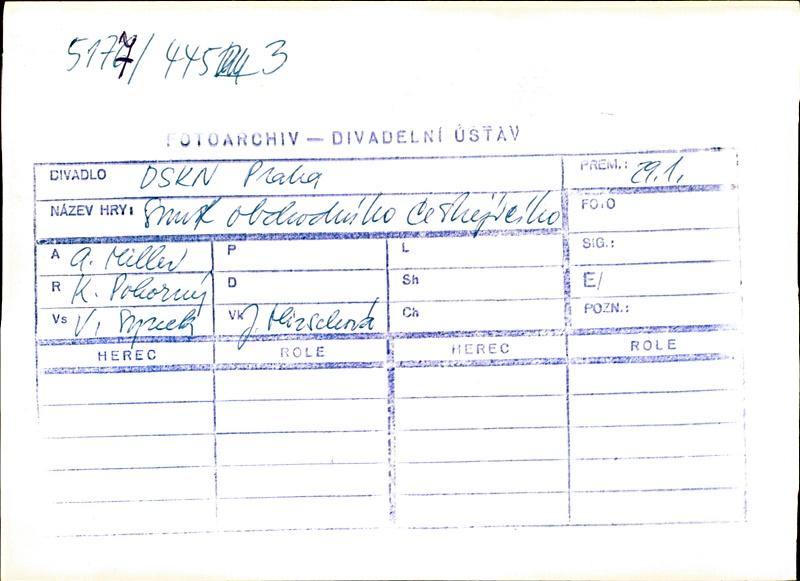 5177/445 3
FOTOARCHIV — DIVADELNÍ ÚSTAV
DIVADLO DSKN Praha PREM.: 29.1.
NÁZEV HRY: Smrt obchodního cestujícího FOTO
A A. Miller P L SIG.:
R K. Pokorný D Sh E/
Vs V. Vk J. Ch POZN.:
HEREC ROLE HEREC ROLE